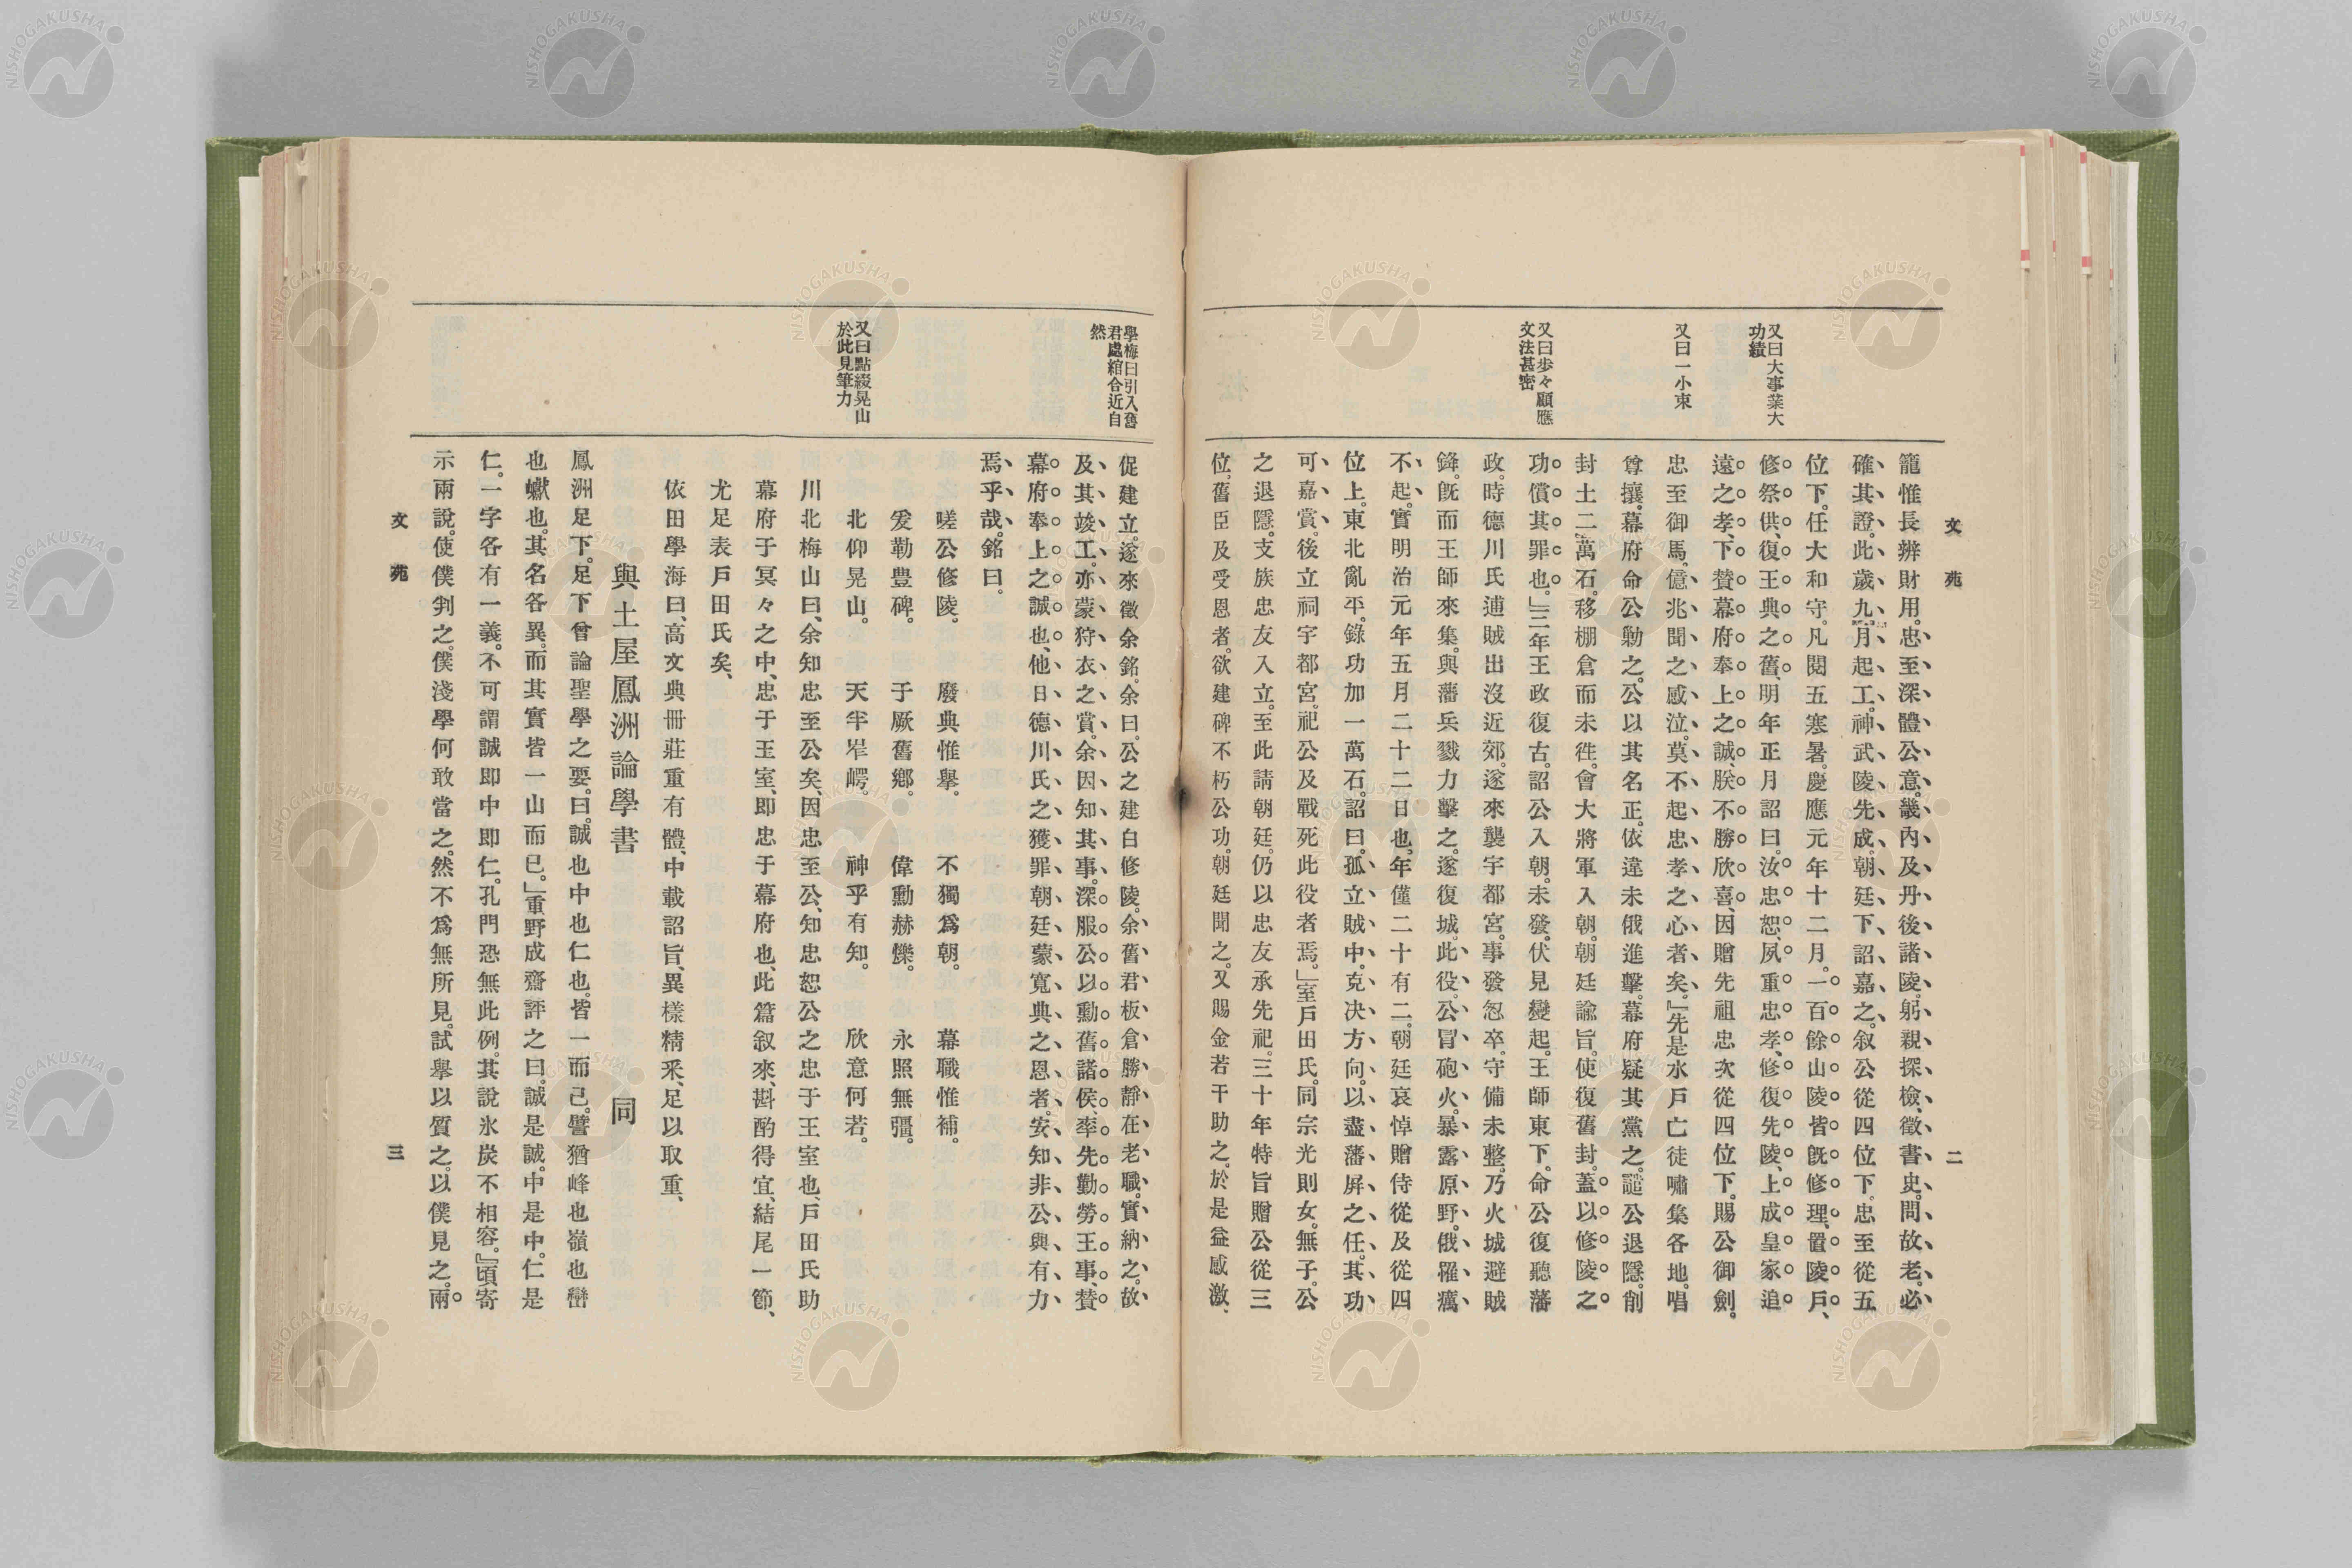 文苑
二
又曰大事業大
功績
又曰一小束
又曰歩々顧應
文法甚密
籠惟長辨財用。忠至深體公意。畿內及丹後諸陵。躬親探檢。徵書史。問故老。必
確其證。此歲九月起工。神武陵先成。朝廷下詔嘉之。叙公從四位下。忠至從五
位下。任大和守。凡閱五寒暑。慶應元年十二月。一百餘山陵皆旣修理、置陵戶、
修祭供、復王典之舊、明年正月詔曰。汝忠恕、夙重忠孝、修復先陵、上成皇家追
遠之孝、下賛幕府奉上之誠、朕不勝欣喜、因贈先祖忠次從四位下。賜公御劍。
忠至御馬。億兆聞之感泣。莫不起忠孝之心者矣。』先是水戶亡徒嘯集各地。唱
尊攘。幕府命公勦之。公以其名正。依違未俄進擊。幕府疑其黨之。譴公退隱。削
封土二萬石。移棚倉而未徃。會大將軍入朝。朝廷諭旨。使復舊封。蓋以修陵之
功償其罪也。』三年王政復古。詔公入朝。未發。伏見變起。王師東下。命公復聽藩
政。時德川氏逋賊出沒近郊。遂來襲宇都宮。事發怱卒。守備未整。乃火城避賊
鋒。旣而王師來集。與藩兵戮力擊之。遂復城。此役。公冒砲火。暴露原野。俄罹癘
不起。實明治元年五月二十二日也。年僅二十有二。朝廷哀悼贈侍從及從四
位上。東北亂平。錄功加一萬石。詔曰。孤立賊中。克决方向。以盡藩屏之任。其功
可嘉賞。後立祠宇都宮。祀公及戰死此役者焉。』室戶田氏。同宗光則女。無子。公
之退隱。支族忠友入立。至此請朝廷。仍以忠友承先祀。三十年特旨贈公從三
位。舊臣及受恩者。欲建碑不朽公功。朝廷聞之。又賜金若干助之。於是益感激、
學梅曰引入舊
君處綰合近自
然
又曰點綴晃山
於此見筆力
促建立。遂來徵余銘。余曰。公之建白修陵。余舊君板倉勝靜在老職。實納之。故
及其竣工。亦蒙狩衣之賞。余因知其事。深服公以勳舊諸侯、率先勤勞王事、賛
幕府奉上之誠也、他日德川氏之獲罪朝廷、蒙寬典之恩者、安知非公與有力
焉乎哉。銘曰。
嗟公修陵。　廢典惟擧。　不獨爲朝。　幕職惟補。
爰勒豊碑。　于厥舊鄕。　偉勳赫爍。　永照無彊。
北仰晃山。　天半岸崿。　神乎有知。　欣意何若。
川北梅山曰、余知忠至公矣、因忠至公、知忠恕公之忠于王室也、戶田氏助
幕府于冥々之中、忠于王室、卽忠于幕府也、此篇叙來、斟酌得宜、結尾一節、
尤足表戶田氏矣、
依田學海曰、高文典冊莊重有體、中載詔旨、異樣精釆、足以取重、
與土屋鳳洲論學書　同
鳳洲足下。足下曾論聖學之要。曰。誠也中也仁也。皆一而已。譬猶峰也嶺也巒
也巘也。其名各異。而其實皆一山而已。』重野成齋評之曰。誠是誠。中是中。仁是
仁。一字各有一義。不可謂誠卽中卽仁。孔門恐無此例。其說氷炭不相容。』頃寄
示兩說。使僕判之。僕淺學何敢當之。然不爲無所見。試擧以質之。以僕見之。兩
文苑
三